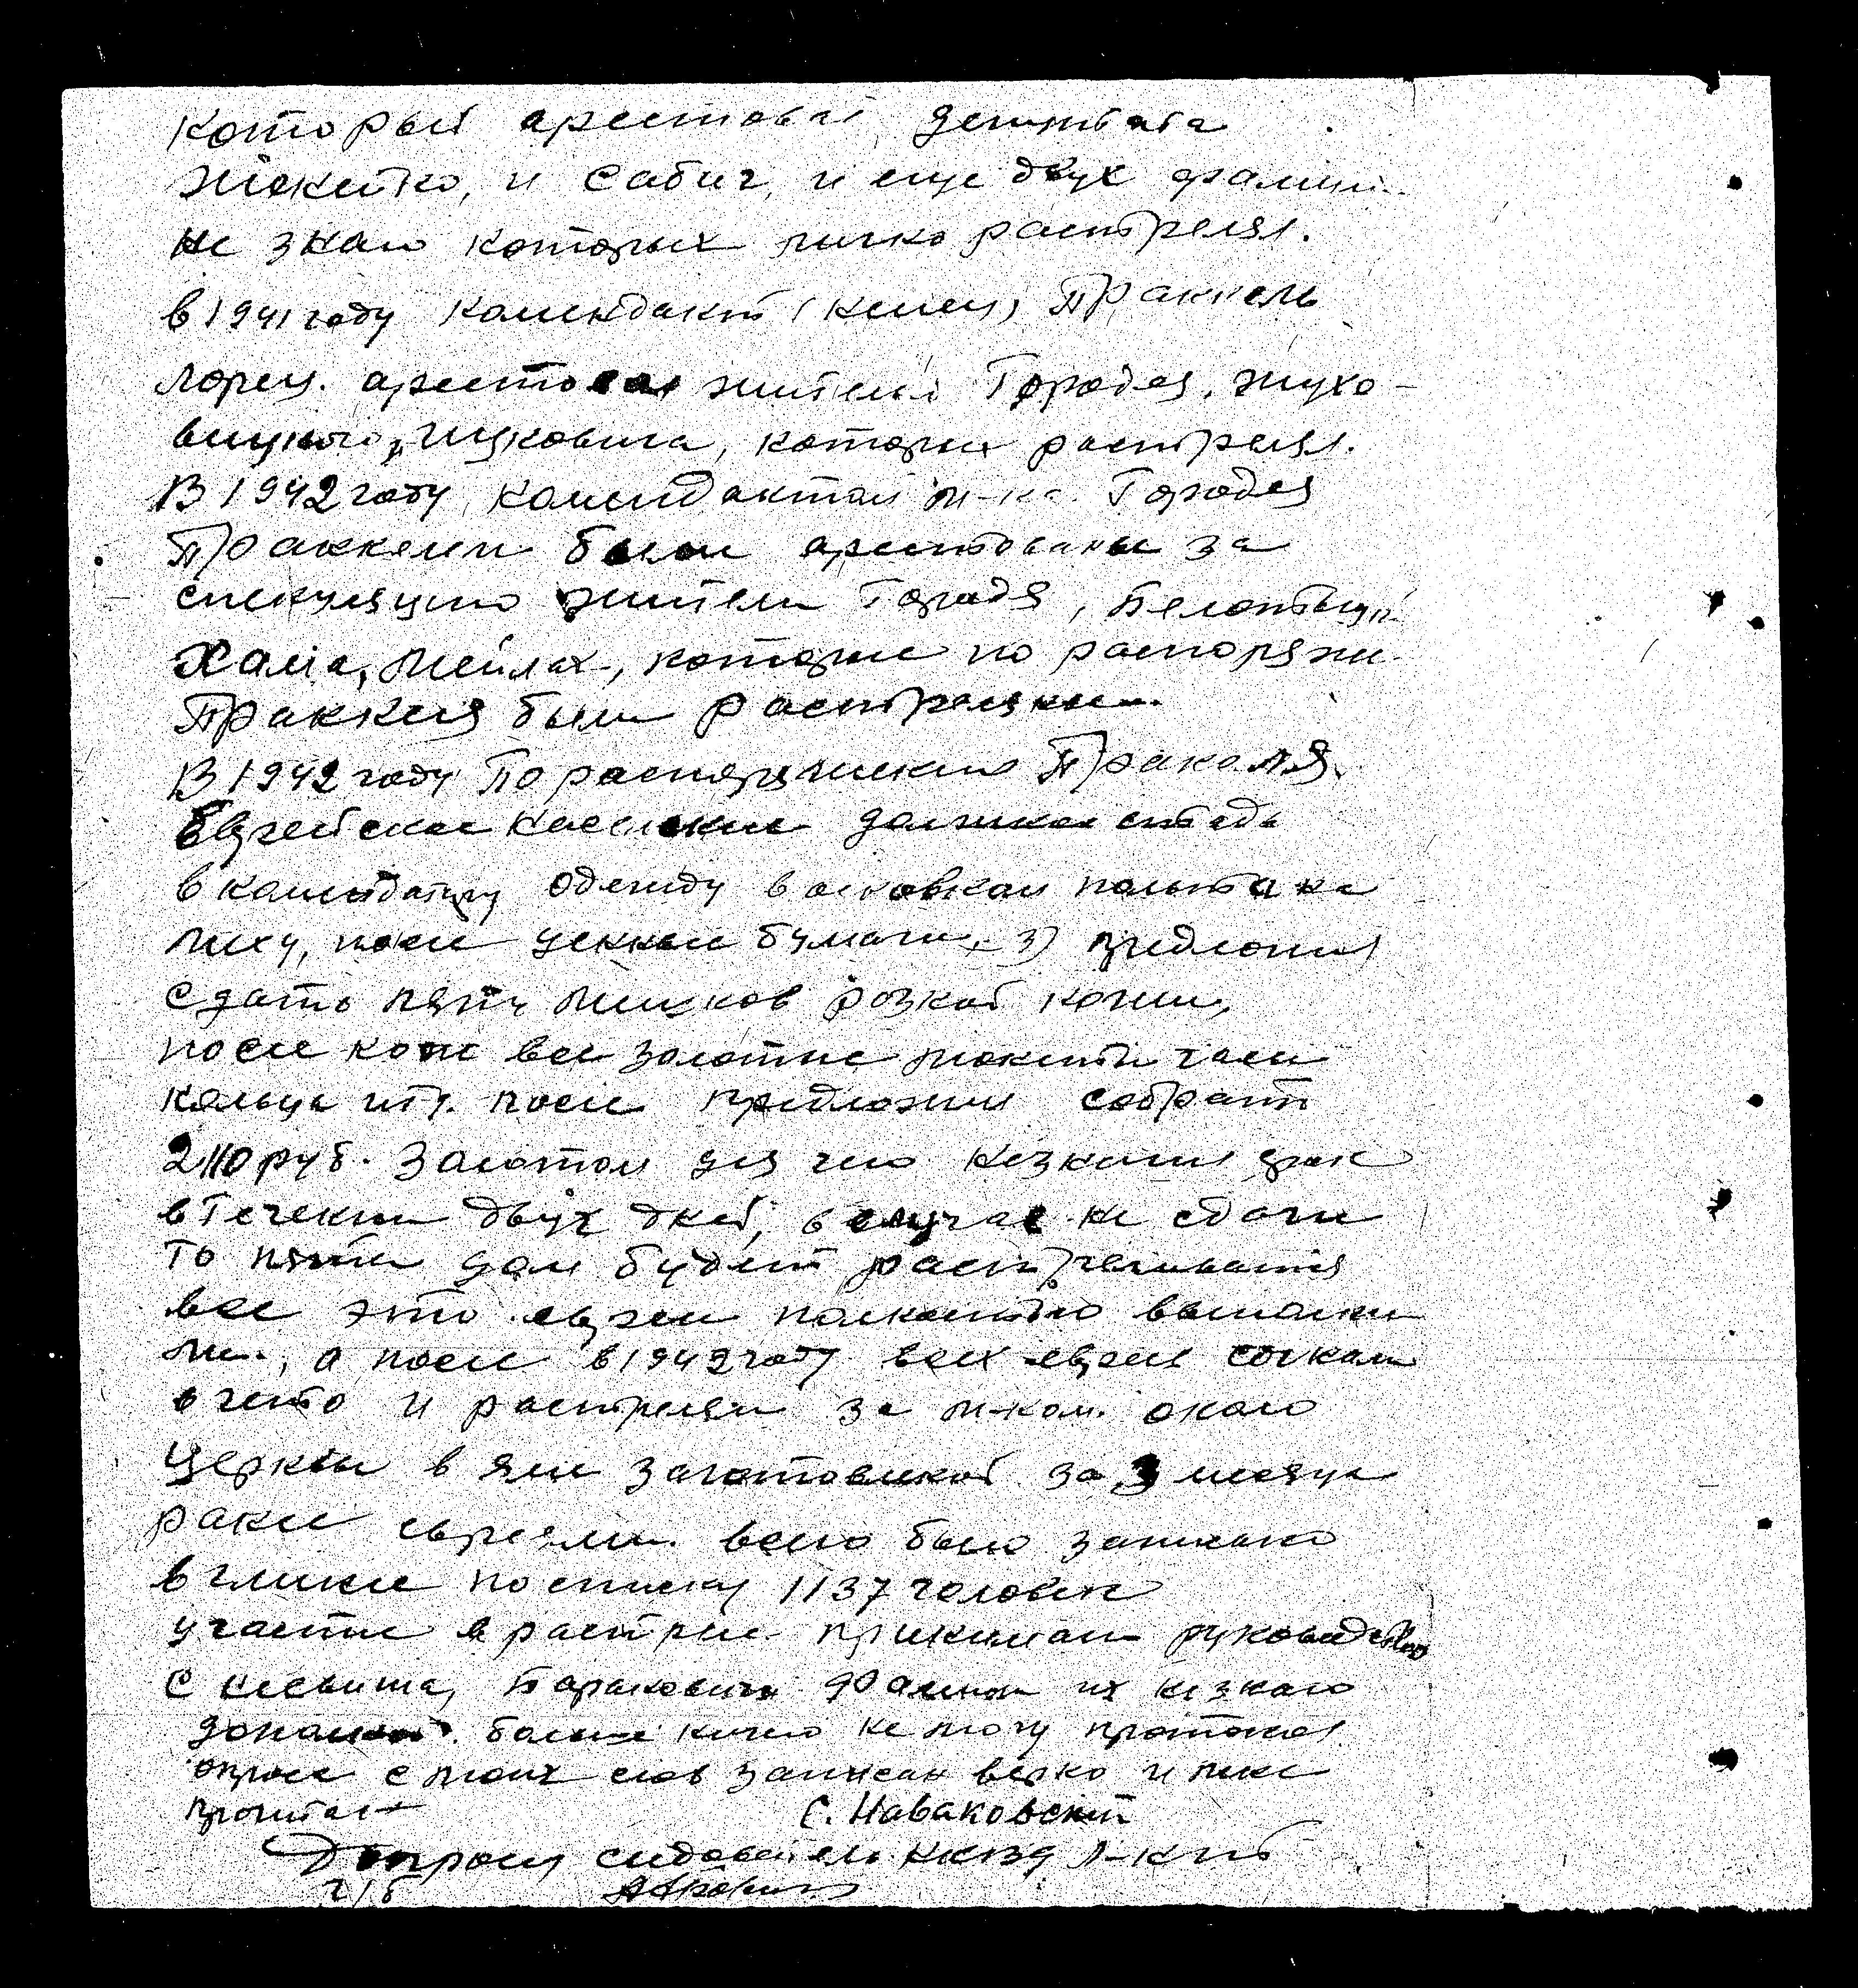 который арестовал депутата
и Сабич, и еще двух фамили
не знаю которых лично растрелял.
в 1941 году комендант (немец) Пранкель
Лоренц. арестовал жителей Городея, жухо-
которых растрелял.
В 1942 году комендантом м-ка. Городея
Пранкелем были арестованы за
спекуляцию жители Городея,
Хаим, Мейлах, которые по распоряже.
Пранкеля были растреляны.
В 1942 году По распоряжению Пранкеля
Еврейское население должно отдать
в комендатуру одежду в основном пальто на
меху, после ценные бумаги, 3) предложил
сдать пять мешков кожи,
после все золотые монети часи
кольца итд. после предложил собрать
2110 руб. золотом для чего назначил срок
в течении двух дней, в случае не сдачи
то пяты дом будет растреливатся
все это евреи полностью выполни
ли, а после в 1942 году всех евреев согнали
в гетто и растреляли за м-ком. около
церквы в яме заготовленой за 3 месяца
ранее евреями. всего было записано
в по списку 1137 человек
участие в растреле принимали руководство
с Несвижа, фамили их незнаю
больше ничего не могу протокол
опроса с моих слов записан верно и мне
прочитан С. Наваковский
Допросил следователь НКВД
г/б